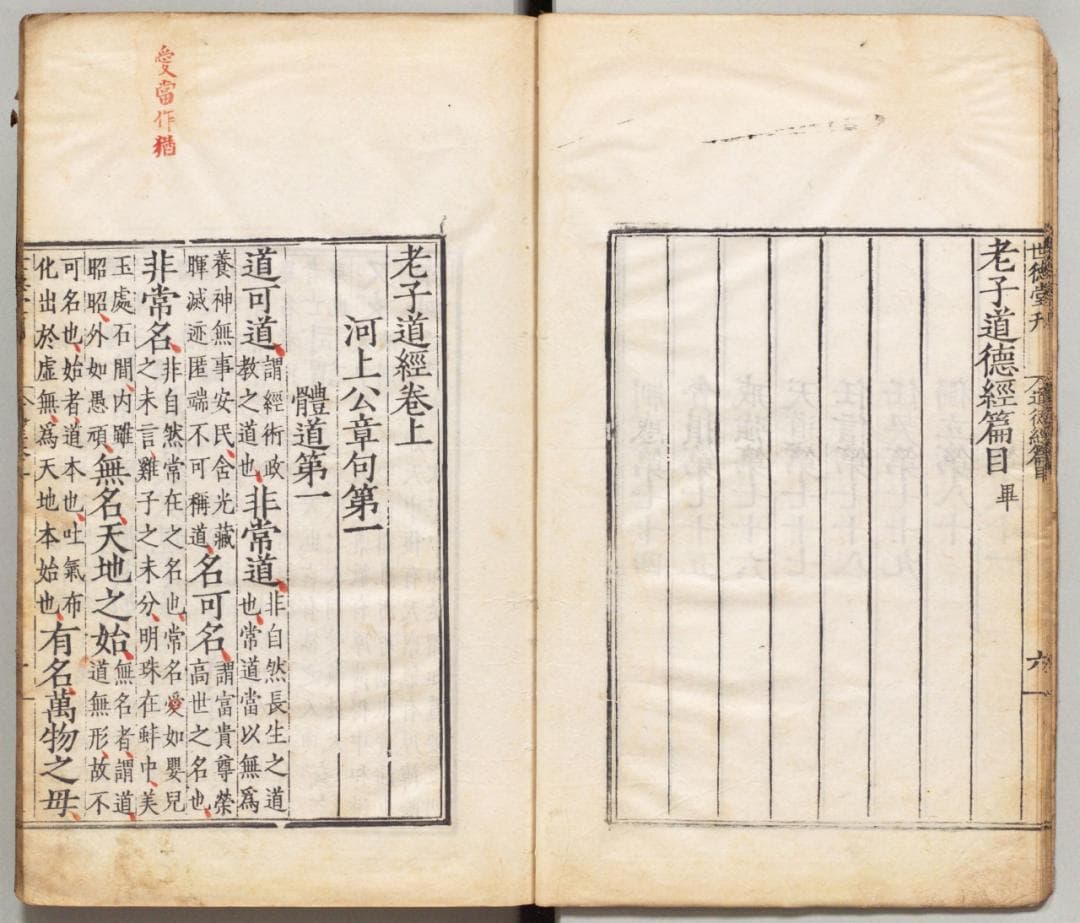 世德堂刊
道德經篇目
六
老子道德經篇目 畢
老子道經卷上
河上公章句第一
體道第一
道可道謂經術政教之道也非常道非自然長生之道也常道當以無爲
養神無事安民含光藏暉滅迹匿端不可稱道名可名謂富貴尊榮高世之名也
非常名非自然常在之名也常名愛如嬰兒之未言雞子之未分明珠在蚌中美
玉處石間内雖昭昭外如愚頑無名天地之始無名者謂道道無形故不
可名也始者道本也吐氣布化出於虛無爲天地本始也有名萬物之母
愛當作猶